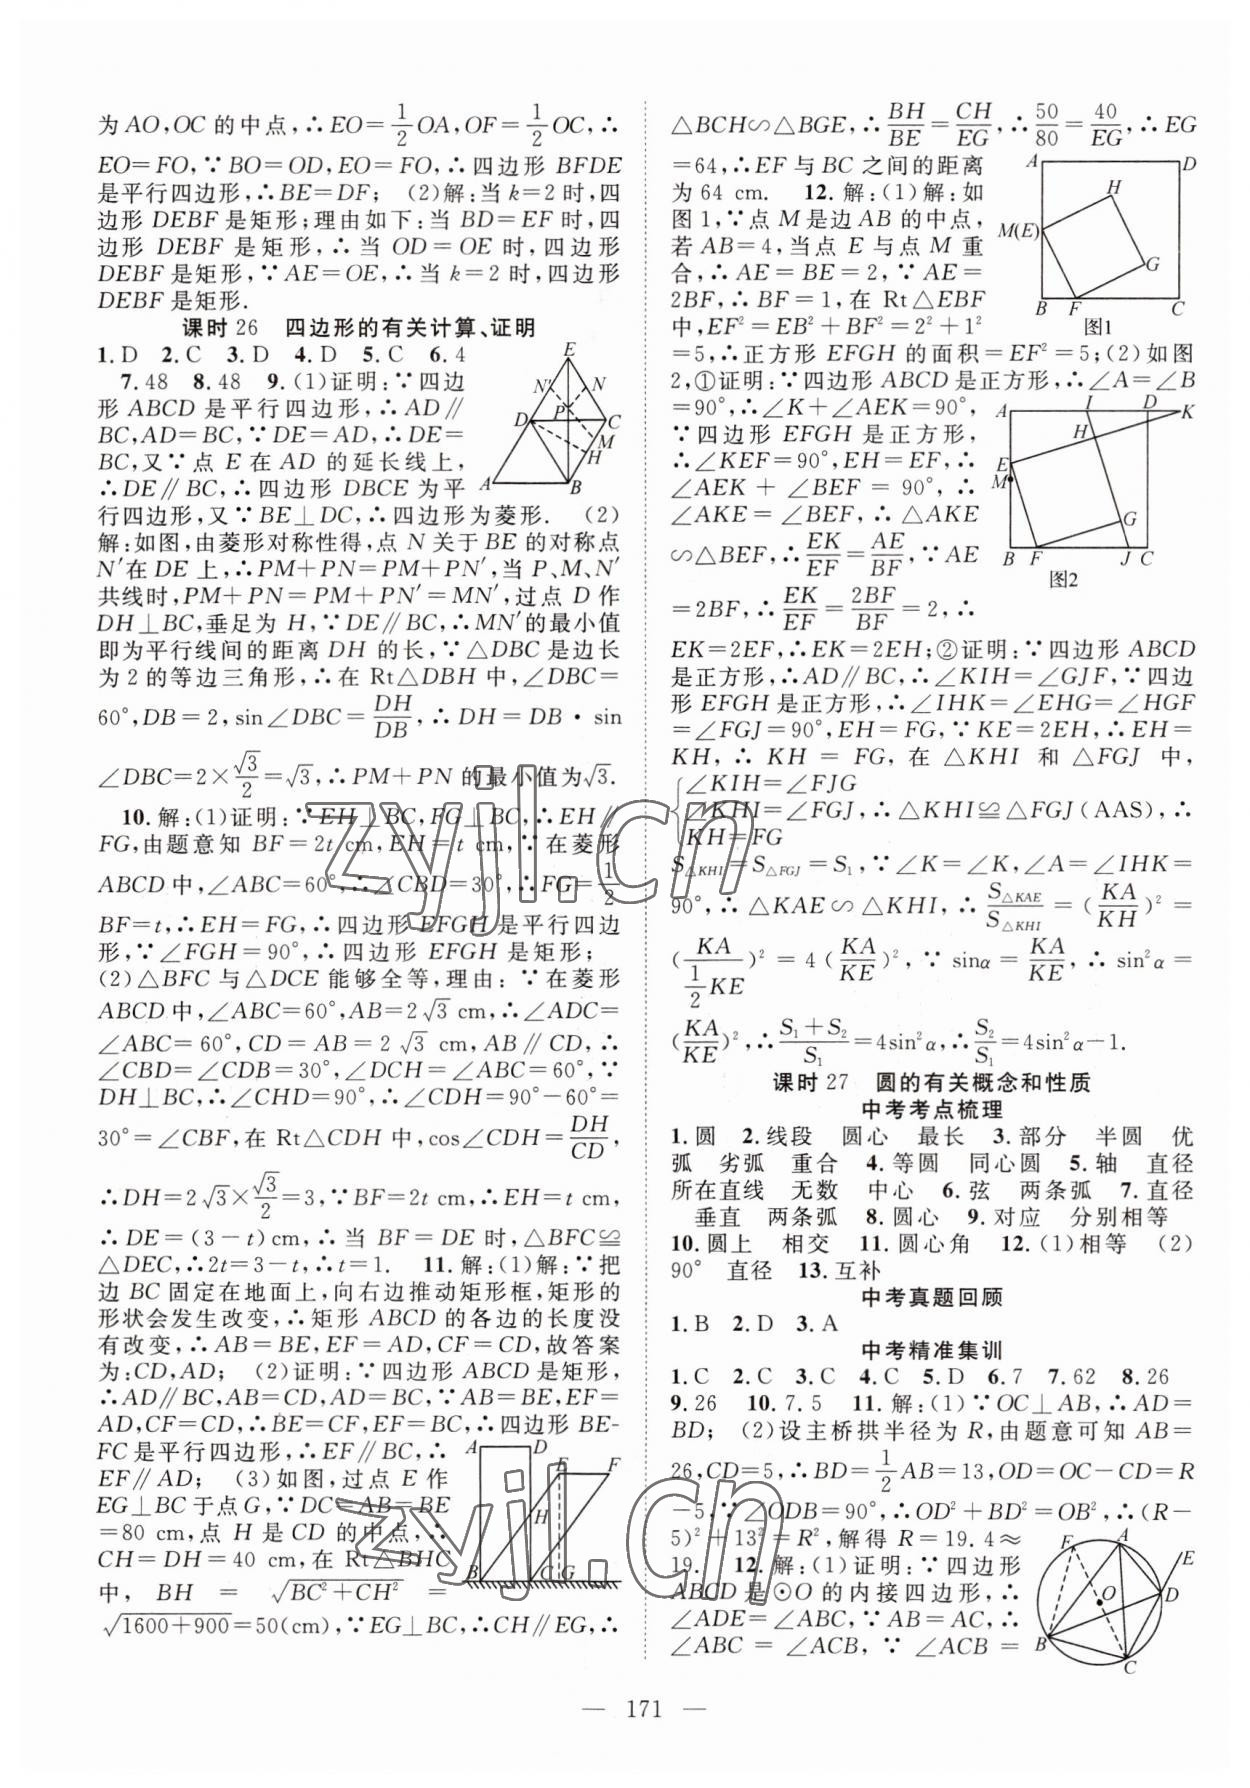 为 AO,OC 的中点,∴EO=1/2OA,OF=1/2OC,∴
EO=FO,∵BO=OD,EO=FO,∴四边形 BFDE
是平行四边形,∴BE=DF; (2)解:当 k=2 时,四
边形 DEBF 是矩形;理由如下:当 BD=EF 时,四
边形 DEBF 是矩形,∴当 OD=OE 时,四边形
DEBF 是矩形,∵AE=OE,∴当 k=2 时,四边形
DEBF 是矩形.
课时 26 四边形的有关计算、证明
1.D 2.C 3.D 4.D 5.C 6.4
7.48 8.48 9.(1)证明:∵四边
形 ABCD 是平行四边形,∴AD∥
BC,AD=BC,∵DE=AD,∴DE=
BC,又∵点 E 在 AD 的延长线上,
∴DE∥BC,∴四边形 DBCE 为平
行四边形,又∵BE⊥DC,∴四边形为菱形. (2)
解:如图,由菱形对称性得,点 N 关于 BE 的对称点
N′在 DE 上,∴PM+PN=PM+PN′,当 P、M、N′
共线时,PM+PN=PM+PN′=MN′,过点 D 作
DH⊥BC,垂足为 H,∵DE∥BC,∴MN′的最小值
即为平行线间的距离 DH 的长,∵△DBC 是边长
为 2 的等边三角形,∴在 Rt△DBH 中,∠DBC=
60°,DB=2,sin∠DBC=DH/DB,∴DH=DB·sin
∠DBC=2×√3/2=√3,∴PM+PN 的最小值为√3.
10.解:(1)证明:∵EH⊥BC,FG⊥BC,∴EH∥
FG,由题意知 BF=2t cm,EH=t cm,∵在菱形
ABCD 中,∠ABC=60°,∴∠CBD=30°,∴FG=1/2
BF=t,∴EH=FG,∴四边形 EFGH 是平行四边
形,∵∠FGH=90°,∴四边形 EFGH 是矩形;
(2)△BFC 与△DCE 能够全等,理由:∵在菱形
ABCD 中,∠ABC=60°,AB=2√3 cm,∴∠ADC=
∠ABC=60°,CD=AB=2√3 cm,AB∥CD,∴
∠CBD=∠CDB=30°,∠DCH=∠ABC=60°,∵
DH⊥BC,∴∠CHD=90°,∴∠CDH=90°-60°=
30°=∠CBF,在 Rt△CDH 中,cos∠CDH=DH/CD,
∴DH=2√3×√3/2=3,∵BF=2t cm,∴EH=t cm,
∴DE=(3-t)cm,∴当 BF=DE 时,△BFC≌
△DEC,∴2t=3-t,∴t=1. 11.解:(1)解:∵把
边 BC 固定在地面上,向右边推动矩形框,矩形的
形状会发生改变,∴矩形 ABCD 的各边的长度没
有改变,∴AB=BE,EF=AD,CF=CD,故答案
为:CD,AD; (2)证明:∵四边形 ABCD 是矩形,
∴AD∥BC,AB=CD,AD=BC,∵AB=BE,EF=
AD,CF=CD,∴BE=CF,EF=BC,∴四边形 BE-
FC 是平行四边形,∴EF∥BC,∴
EF∥AD; (3)如图,过点 E 作
EG⊥BC 于点 G,∵DC=AB=BE
=80 cm,点 H 是 CD 的中点,∴
CH=DH=40 cm,在 Rt△BHC
中, BH = √BC²+CH² =
√1600+900=50(cm),∵EG⊥BC,∴CH∥EG,∴
E
N′ N
P
D C
M
H
A B
A D
E F
H
B C G
△BCH∽△BGE,∴BH/BE=CH/EG,∴50/80=40/EG,∴EG
=64,∴EF 与 BC 之间的距离
为 64 cm. 12.解:(1)解:如
图 1,∵点 M 是边 AB 的中点,
若 AB=4,当点 E 与点 M 重
合,∴AE=BE=2,∵AE=
2BF,∴BF=1,在 Rt△EBF
中,EF²=EB²+BF²=2²+1²
=5,∴正方形 EFGH 的面积=EF²=5;(2)如图
2,①证明:∵四边形 ABCD 是正方形,∴∠A=∠B
=90°,∴∠K+∠AEK=90°,
∵四边形 EFGH 是正方形,
∴∠KEF=90°,EH=EF,∴
∠AEK+∠BEF=90°,∴
∠AKE=∠BEF,∴△AKE
∽△BEF,∴EK/EF=AE/BF,∵AE
=2BF,∴EK/EF=2BF/BF=2,∴
EK=2EF,∴EK=2EH;②证明:∵四边形 ABCD
是正方形,∴AD∥BC,∴∠KIH=∠GJF,∵四边
形 EFGH 是正方形,∴∠IHK=∠EHG=∠HGF
=∠FGJ=90°,EH=FG,∵KE=2EH,∴EH=
KH,∴KH=FG,在△KHI 和△FGJ 中,
∠KIH=∠FJG
∠KHI=∠FGJ,∴△KHI≌△FGJ(AAS),∴
KH=FG
S△KHI=S△FGJ=S₁,∵∠K=∠K,∠A=∠IHK=
90°,∴△KAE∽△KHI,∴S△KAE/S△KHI=(KA/KH)²=
(KA/(1/2KE))²=4(KA/KE)²,∵sinα=KA/KE,∴sin²α=
(KA/KE)²,∴(S₁+S₂)/S₁=4sin²α,∴S₂/S₁=4sin²α-1.
A D
H
M(E)
G
B F C
图1
A I D K
H
E
M
G
B F J C
图2
课时 27 圆的有关概念和性质
中考考点梳理
1.圆 2.线段 圆心 最长 3.部分 半圆 优
弧 劣弧 重合 4.等圆 同心圆 5.轴 直径
所在直线 无数 中心 6.弦 两条弧 7.直径
垂直 两条弧 8.圆心 9.对应 分别相等
10.圆上 相交 11.圆心角 12.(1)相等 (2)
90° 直径 13.互补
中考真题回顾
1.B 2.D 3.A
中考精准集训
1.C 2.C 3.C 4.C 5.D 6.7 7.62 8.26
9.26 10.7.5 11.解:(1)∵OC⊥AB,∴AD=
BD; (2)设主桥拱半径为 R,由题意可知 AB=
26,CD=5,∴BD=1/2AB=13,OD=OC-CD=R
-5,∵∠ODB=90°,∴OD²+BD²=OB²,∴(R-
5)²+13²=R²,解得 R=19.4≈
19. 12.解:(1)证明:∵四边形
ABCD 是⊙O 的内接四边形,∴
∠ADE=∠ABC,∵AB=AC,∴
∠ABC=∠ACB,∵∠ACB=
F A E
D
O
B
C
— 171 —
zyjl.cn
zyjl.cn